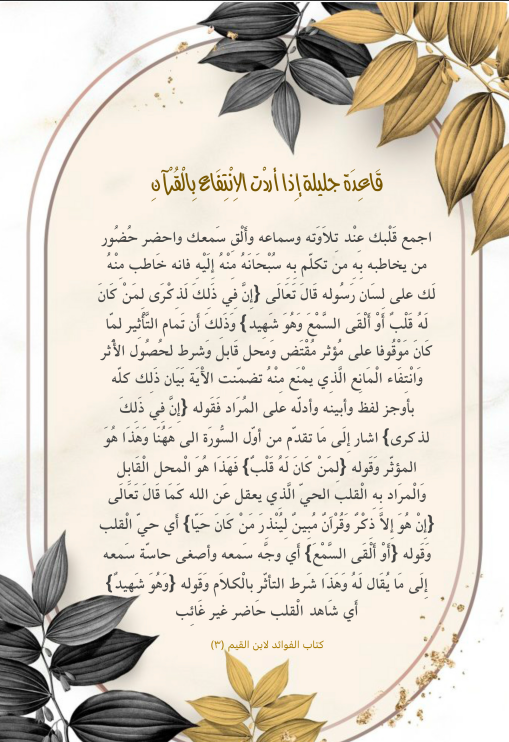 قَاعِدَة جليلة إِذا أردْت الِانْتِفَاع بِالْقُرْآنِ
اجمع قَلْبك عِنْد تِلَاوَته وسماعه وأَلْقِ سَمعك واحضر حُضُور
من يخاطبه بِهِ من تكلّم بِهِ سُبْحَانَهُ مِنْهُ إِلَيْهِ فانه خَاطب مِنْهُ
لَك على لِسَان رَسُوله قَالَ تَعَالَى {إِنَّ فِي ذَلِكَ لَذِكْرَى لِمَنْ كَانَ
لَهُ قَلْبٌ أَوْ أَلْقَى السَّمْعَ وَهُوَ شَهِيد} وَذَلِكَ أَن تَمام التَّأْثِير لمّا
كَانَ مَوْقُوفا على مُؤثر مُقْتَض وَمحل قَابل وَشرط لحُصُول الْأَثر
وَانْتِفَاء الْمَانِع الَّذِي يمْنَع مِنْهُ تضمّنت الْآيَة بَيَان ذَلِك كلّه
بأوجز لفظ وأبينه وأدلّه على المُرَاد فَقَوله {إِنَّ فِي ذَلِكَ
لذكرى} اشار إِلَى مَا تقدّم من أوّل السُّورَة الى هَهُنَا وَهَذَا هُوَ
المؤثّر وَقَوله {لِمَنْ كَانَ لَهُ قَلْبٌ} فَهَذَا هُوَ الْمحل الْقَابِل
وَالْمرَاد بِهِ الْقلب الحيّ الَّذِي يعقل عَن الله كَمَا قَالَ تَعَالَى
{إِنْ هُوَ إِلاَّ ذِكْرٌ وَقُرْآنٌ مُبِينٌ لِيُنْذِرَ مَنْ كَانَ حَيّاً} أَي حيّ الْقلب
وَقَوله {أَوْ أَلْقَى السَّمْعَ} أَي وجَّه سَمعه وأصغى حاسّة سَمعه
إِلَى مَا يُقَال لَهُ وَهَذَا شَرط التأثّر بالْكلَام وَقَوله {وَهُوَ شَهِيدٌ}
أَي شَاهد الْقلب حَاضر غير غَائِب
كتاب الفوائد لابن القيم (٣)